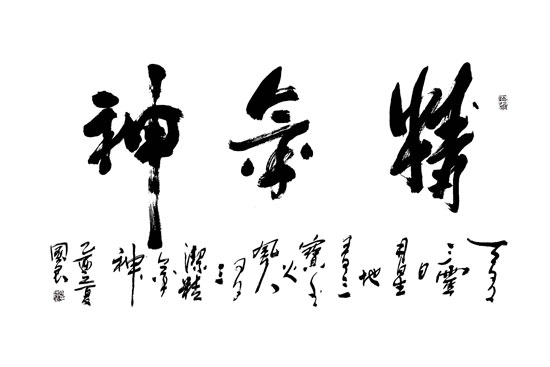 精氣神
天有三靈日月星地有三寶水火風人有三潔精氣神
乙酉之夏